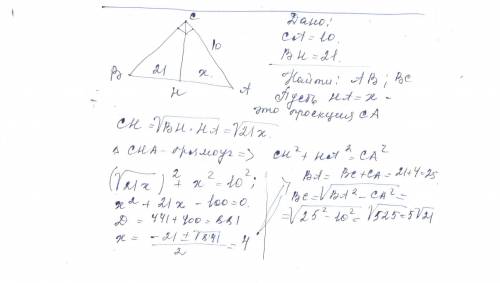 C
10
B
21
x
H
A
Дано:
CA = 10.
BH = 21.
Найти: AB; BC
Пусть HA = x -
это проекция CA
CH = √BH · HA = √21x.
△ CHA - прямоуг => CH² + HA² = CA²
(√21x)² + x² = 10²;
x² + 21x - 100 = 0.
D = 441 + 400 = 841
x = (-21 ± √841)/2 = 4
BA = BC + CA = 21 + 4 = 25.
BC = √BA² - CA² =
= √25² - 10² = √525 = 5√21